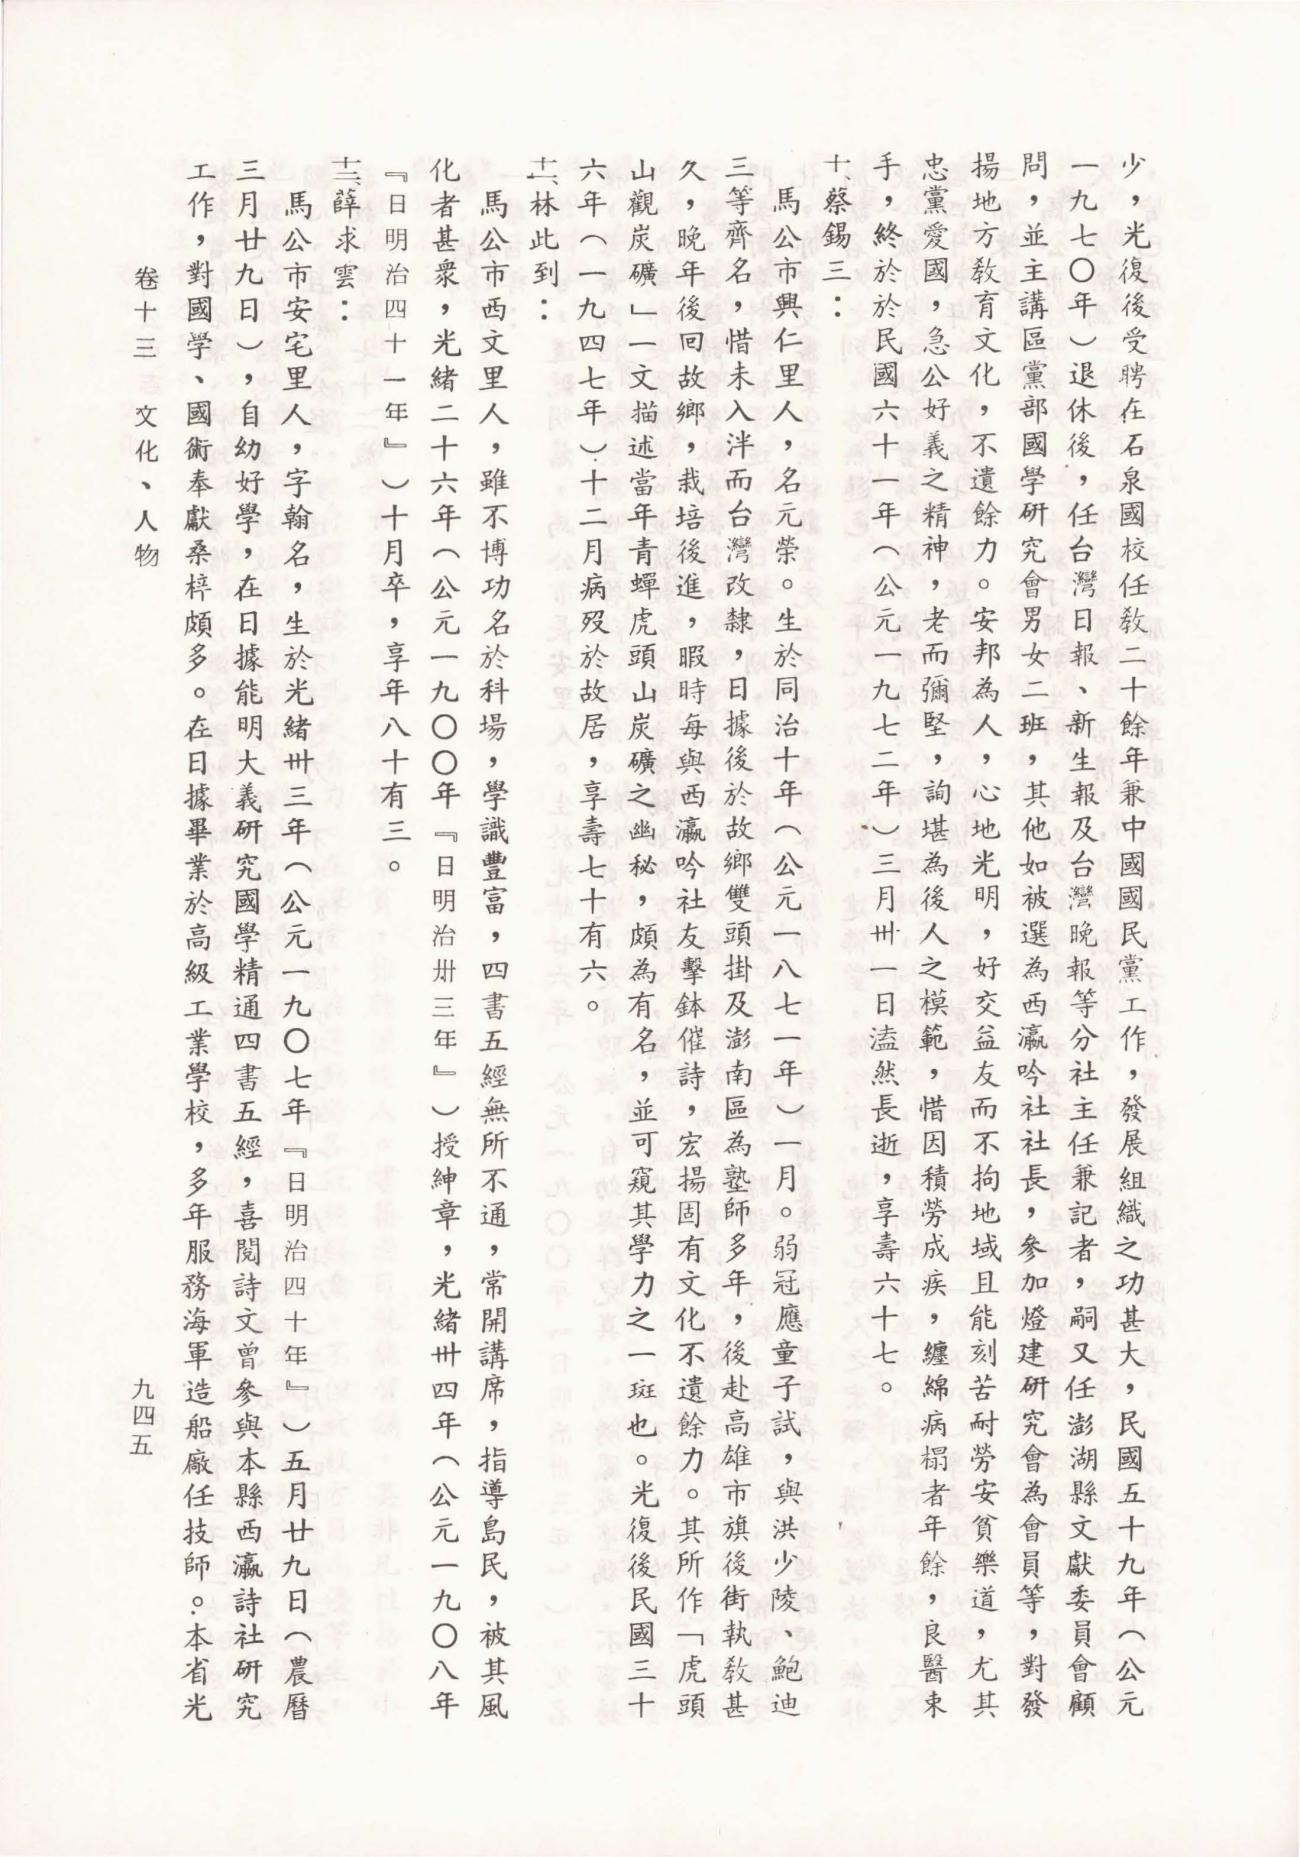 少，光復後受聘在石泉國校任教二十餘年兼中國國民黨工作，發展組織之功甚大，民國五十九年（公元
一九七〇年）退休後，任台灣日報、新生報及台灣晚報等分社主任兼記者，嗣又任澎湖縣文獻委員會顧
問，並主講區黨部國學研究會男女二班，其他如被選為西瀛吟社社長，參加燈建研究會為會員等，對發
揚地方教育文化，不遺餘力。安邦為人，心地光明，好交益友而不拘地域且能刻苦耐勞安貧樂道，尤其
忠黨愛國，急公好義之精神，老而彌堅，詢堪為後人之模範，惜因積勞成疾，纏綿病榻者年餘，良醫束
手，終於於民國六十一年（公元一九七二年）三月卅一日溘然長逝，享壽六十七。
十、蔡錫三：
馬公市興仁里人，名元榮。生於同治十年（公元一八七一年）一月。弱冠應童子試，與洪少陵、鮑迪
三等齊名，惜未入泮而台灣改隸，日據後於故鄉雙頭掛及澎南區為塾師多年，後赴高雄市旗後街執教甚
久，晚年後回故鄉，栽培後進，暇時每與西瀛吟社友擊鉢催詩，宏揚固有文化不遺餘力。其所作「虎頭
山觀炭礦」一文描述當年青蟬虎頭山炭礦之幽秘，頗為有名，並可窺其學力之一斑也。光復後民國三十
六年（一九四七年）十二月病歿於故居，享壽七十有六。
十一、林此到：
馬公市西文里人，雖不博功名於科場，學識豐富，四書五經無所不通，常開講席，指導島民，被其風
化者甚衆，光緒二十六年（公元一九〇〇年『日明治卅三年』）授紳章，光緒卅四年（公元一九〇八年
『日明治四十一年』）十月卒，享年八十有三。
十二、薛求雲：
馬公市安宅里人，字翰名，生於光緒卅三年（公元一九〇七年『日明治四十年』）五月廿九日（農曆
三月廿九日），自幼好學，在日據能明大義研究國學精通四書五經，喜閱詩文曾參與本縣西瀛詩社研究
工作，對國學、國術奉獻桑梓頗多。在日據畢業於高級工業學校，多年服務海軍造船廠任技師。本省光
卷十三 文化、人物
九四五